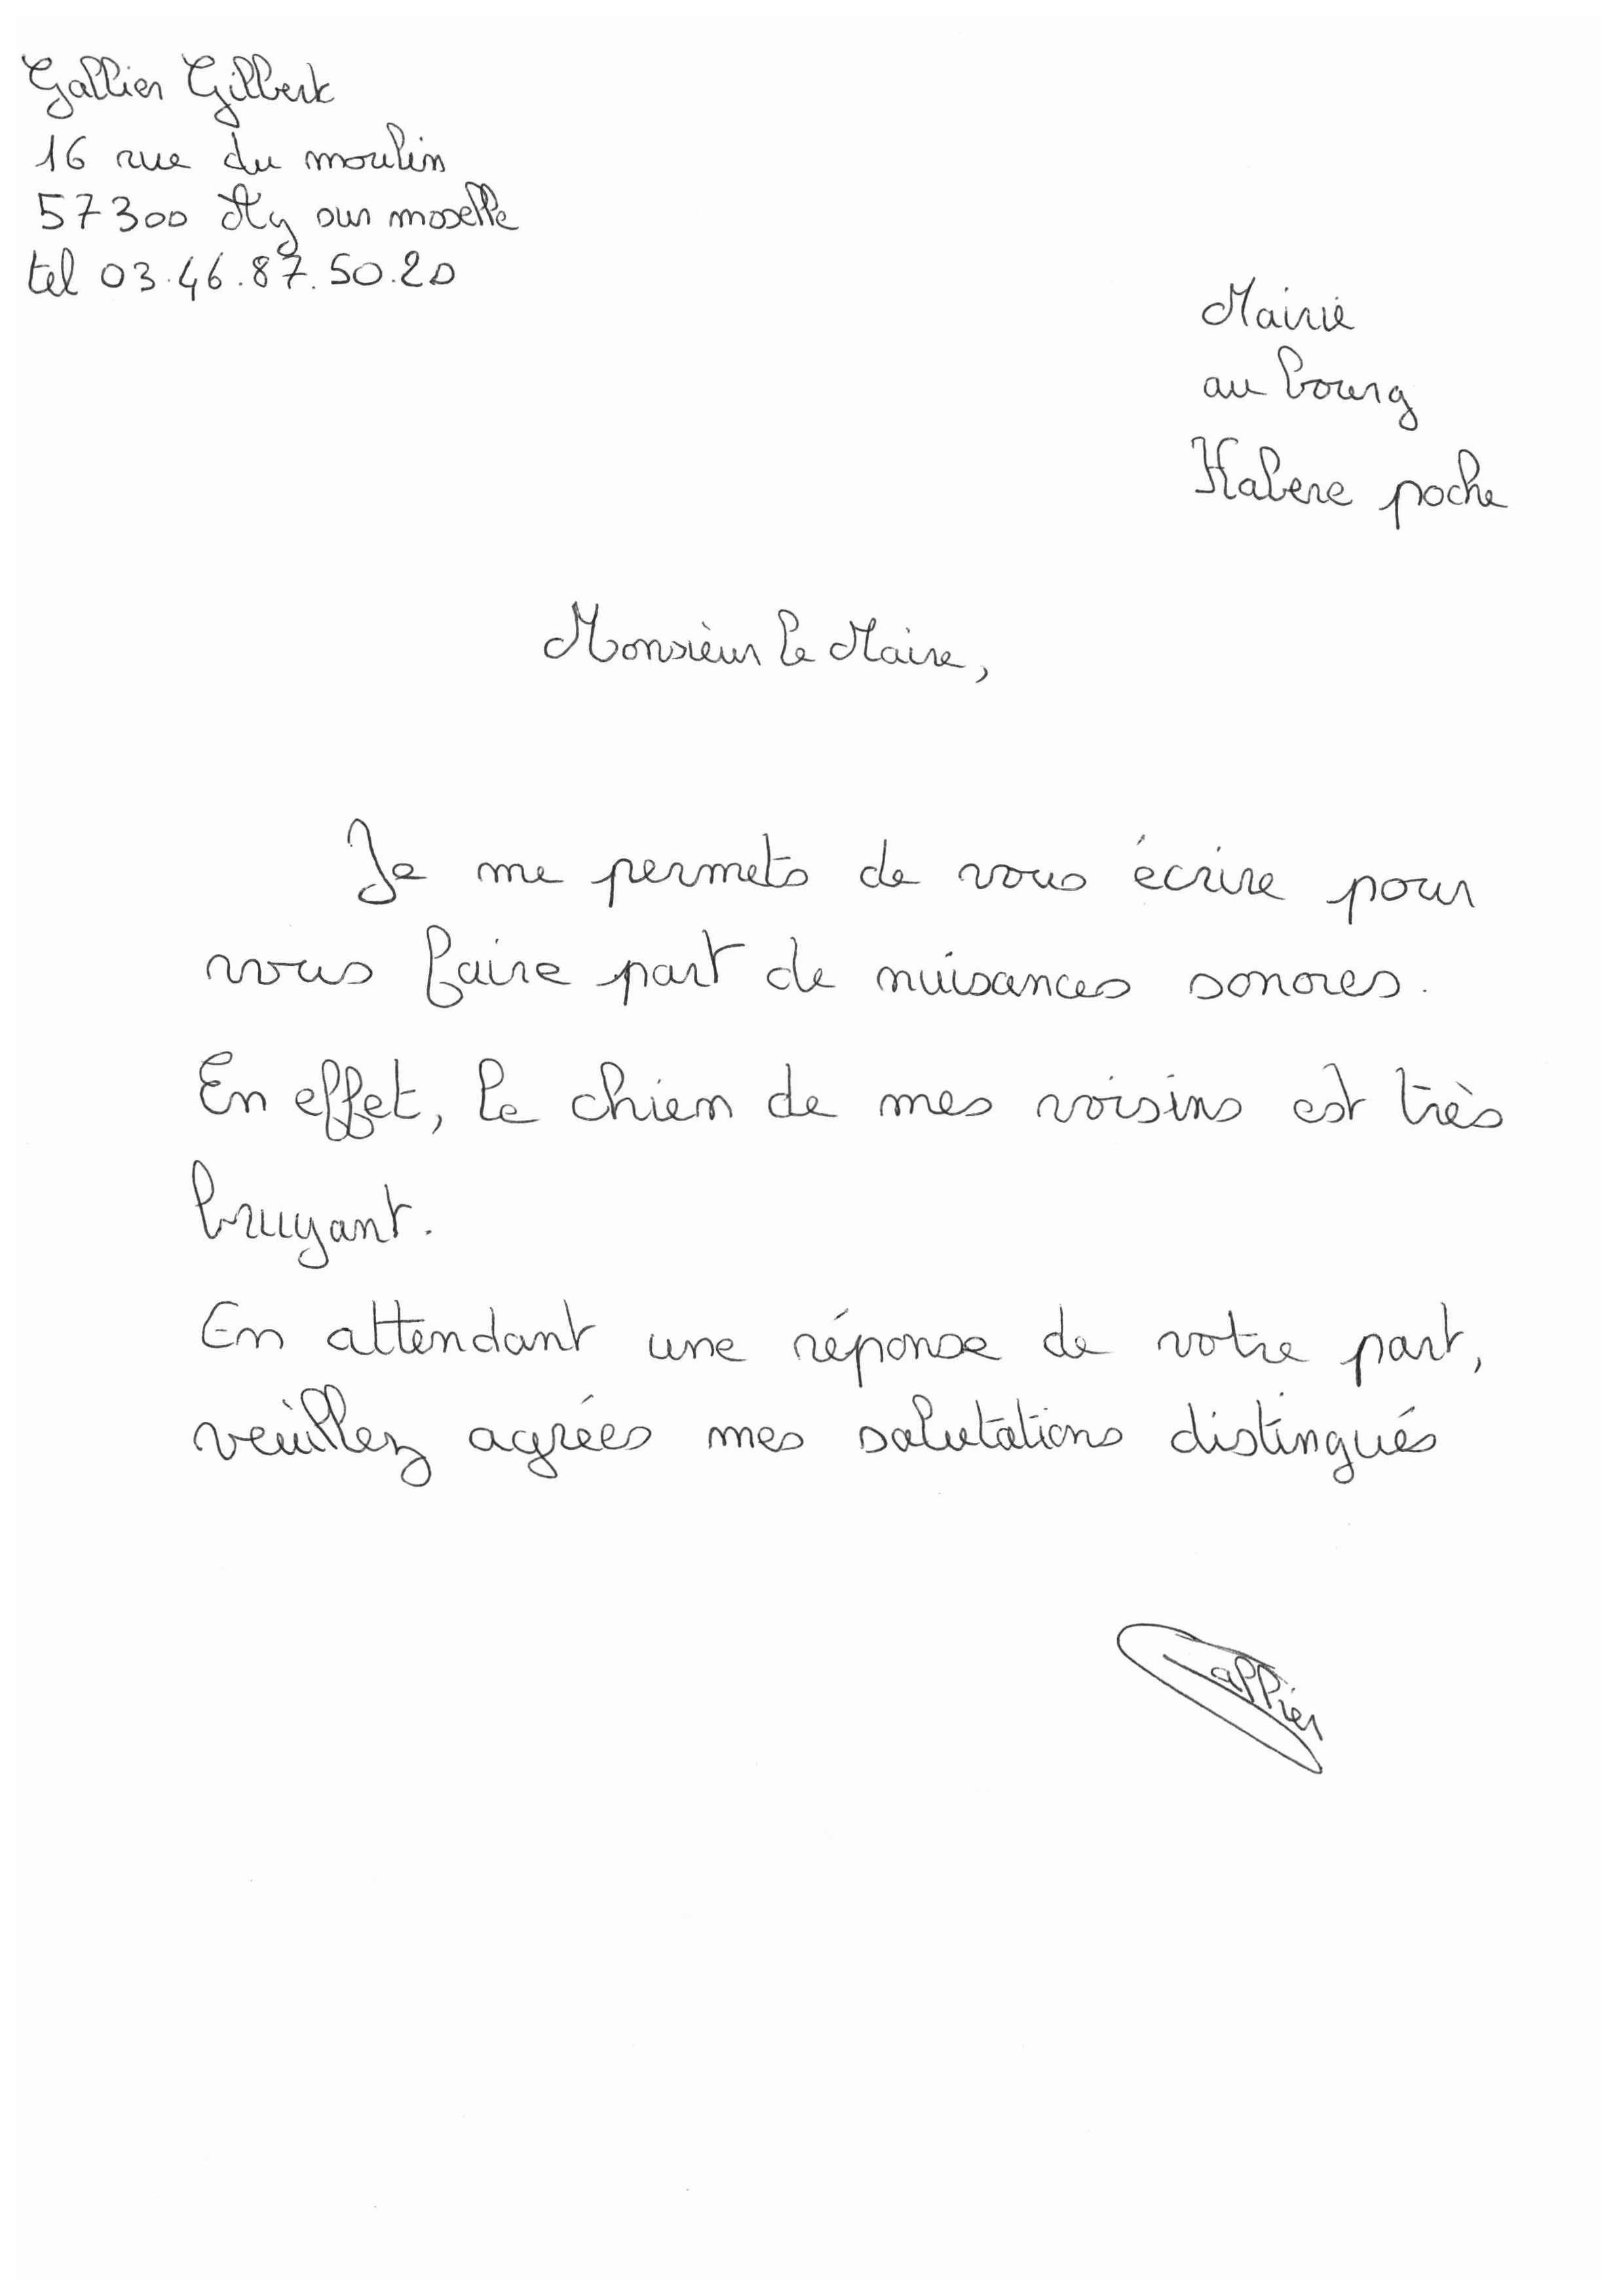 Gallier Gilbert
16 rue du moulin
57300 Ay sur moselle
tel 03.46.87.50.20
Mairie
au bourg
Habere poche
Monsieur le Maire,
Je me permets de vous écrire pour
vous faire part de nuisances sonores.
En effet, le chien de mes voisins est très
bruyant.
En attendant une réponse de votre part,
veuillez agrées mes salutations distingués
Gallier